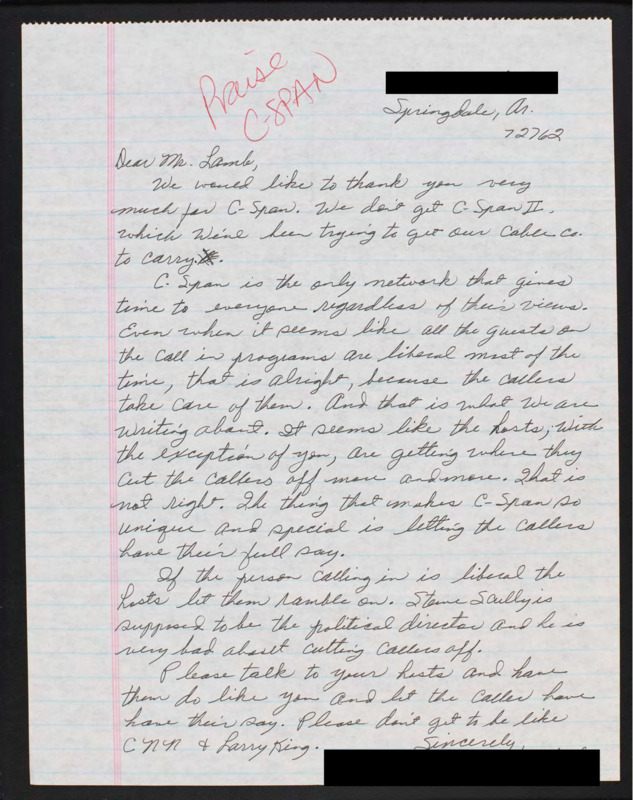 Praise
C-SPAN
Springdale, Ar.
72762
Dear Mr. Lamb,
We would like to thank you very
much for C-Span. We don't get C-Span II,
which We've been trying to get our Cable co.
to carry.
C-Span is the only network that gives
time to everyone regardless of their views.
Even when it seems like all the guests on
the call in programs are liberal most of the
time, that is alright, because the callers
take care of them. And that is what We are
writing about. It seems like the hosts, With
the exception of you, are getting where they
Cut the Callers off more and more. That is
not right. The thing that makes C-Span so
unique and special is letting the Callers
have their full say.
If the person Calling in is liberal the
hosts let them ramble on. Steve Scully is
supposed to be the political director and he is
very bad about Cutting Callers off.
Please talk to your hosts and have
them do like you and let the Caller have
have their say. Please don't get to be like
CNN & Larry King.
Sincerely,